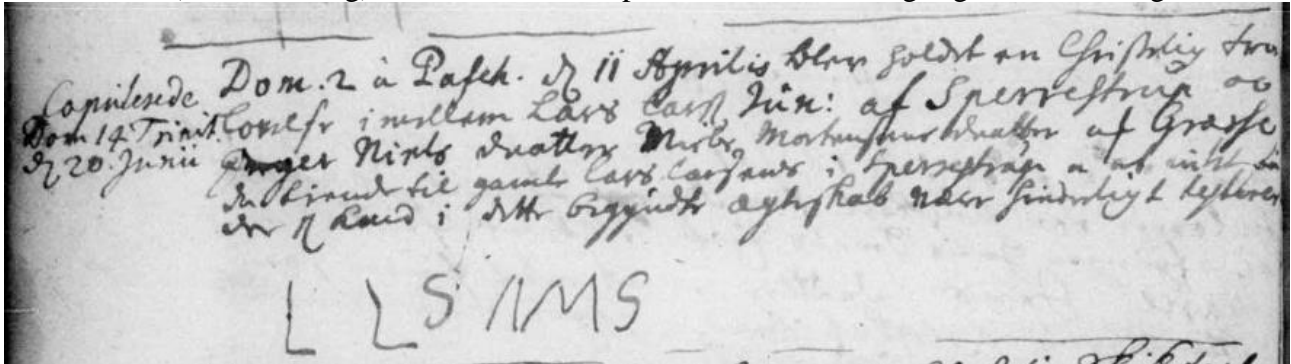 Copulerede
Dom 14 Trinit.
d 20. Junii
Dom. 2 à Pasch. d 11 Aprilis blev holdet en Christelig Tro
lovelse imellem Lars Lars Jun: af Sperrestrup og
Niels datter Mortensens datter af Græse
til gamle Lars Larsens i Sperrestrup at intet
der kand i dette begyndte ægteskab være hinderligt testerer
L L S MS